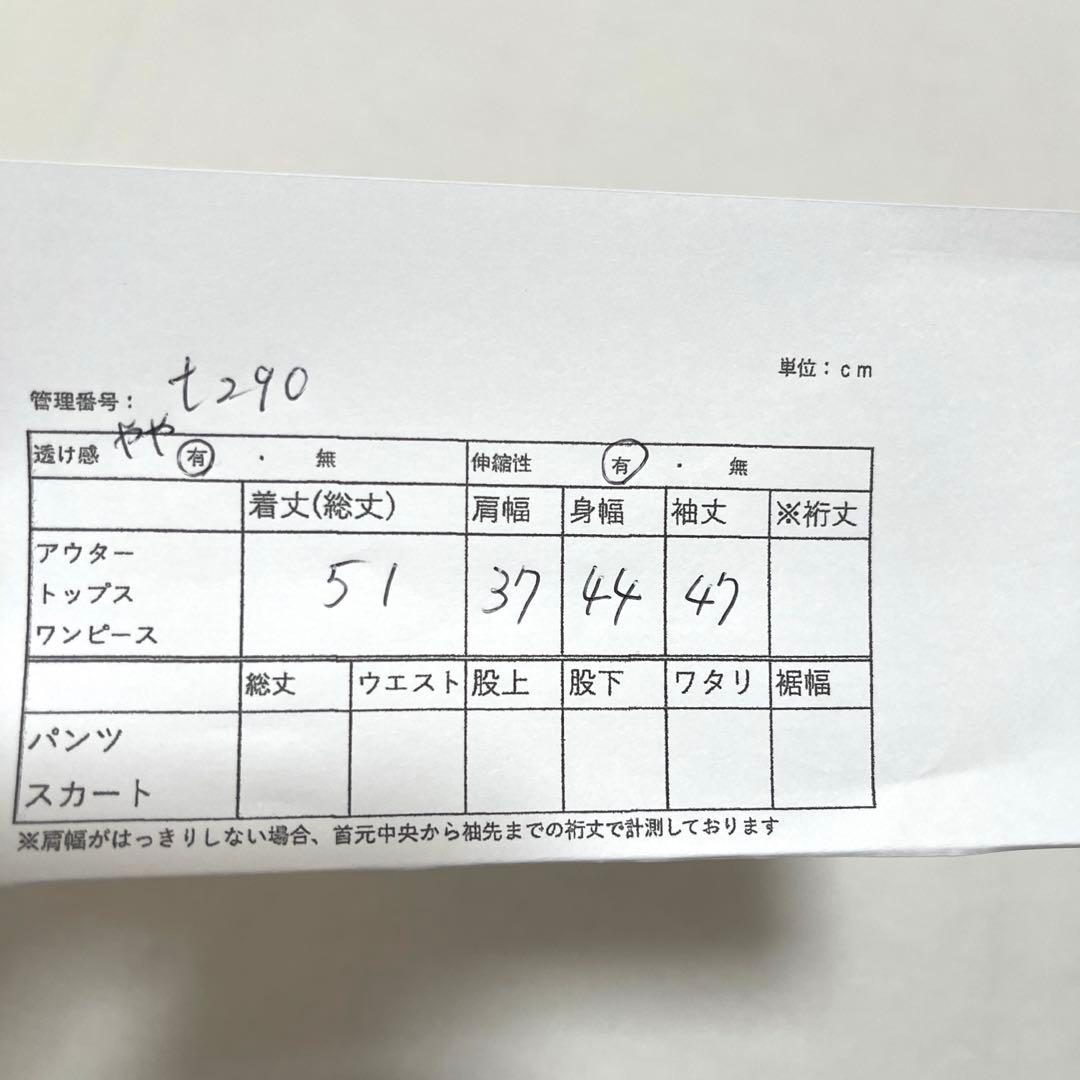 単位：cm
管理番号： t290
透け感 やや 有 ・ 無 伸縮性 有 ・ 無
着丈(総丈) 肩幅 身幅 袖丈 ※裄丈
アウター
トップス 51 37 44 47
ワンピース
総丈 ウエスト 股上 股下 ワタリ 裾幅
パンツ
スカート
※肩幅がはっきりしない場合、首元中央から袖先までの裄丈で計測しております